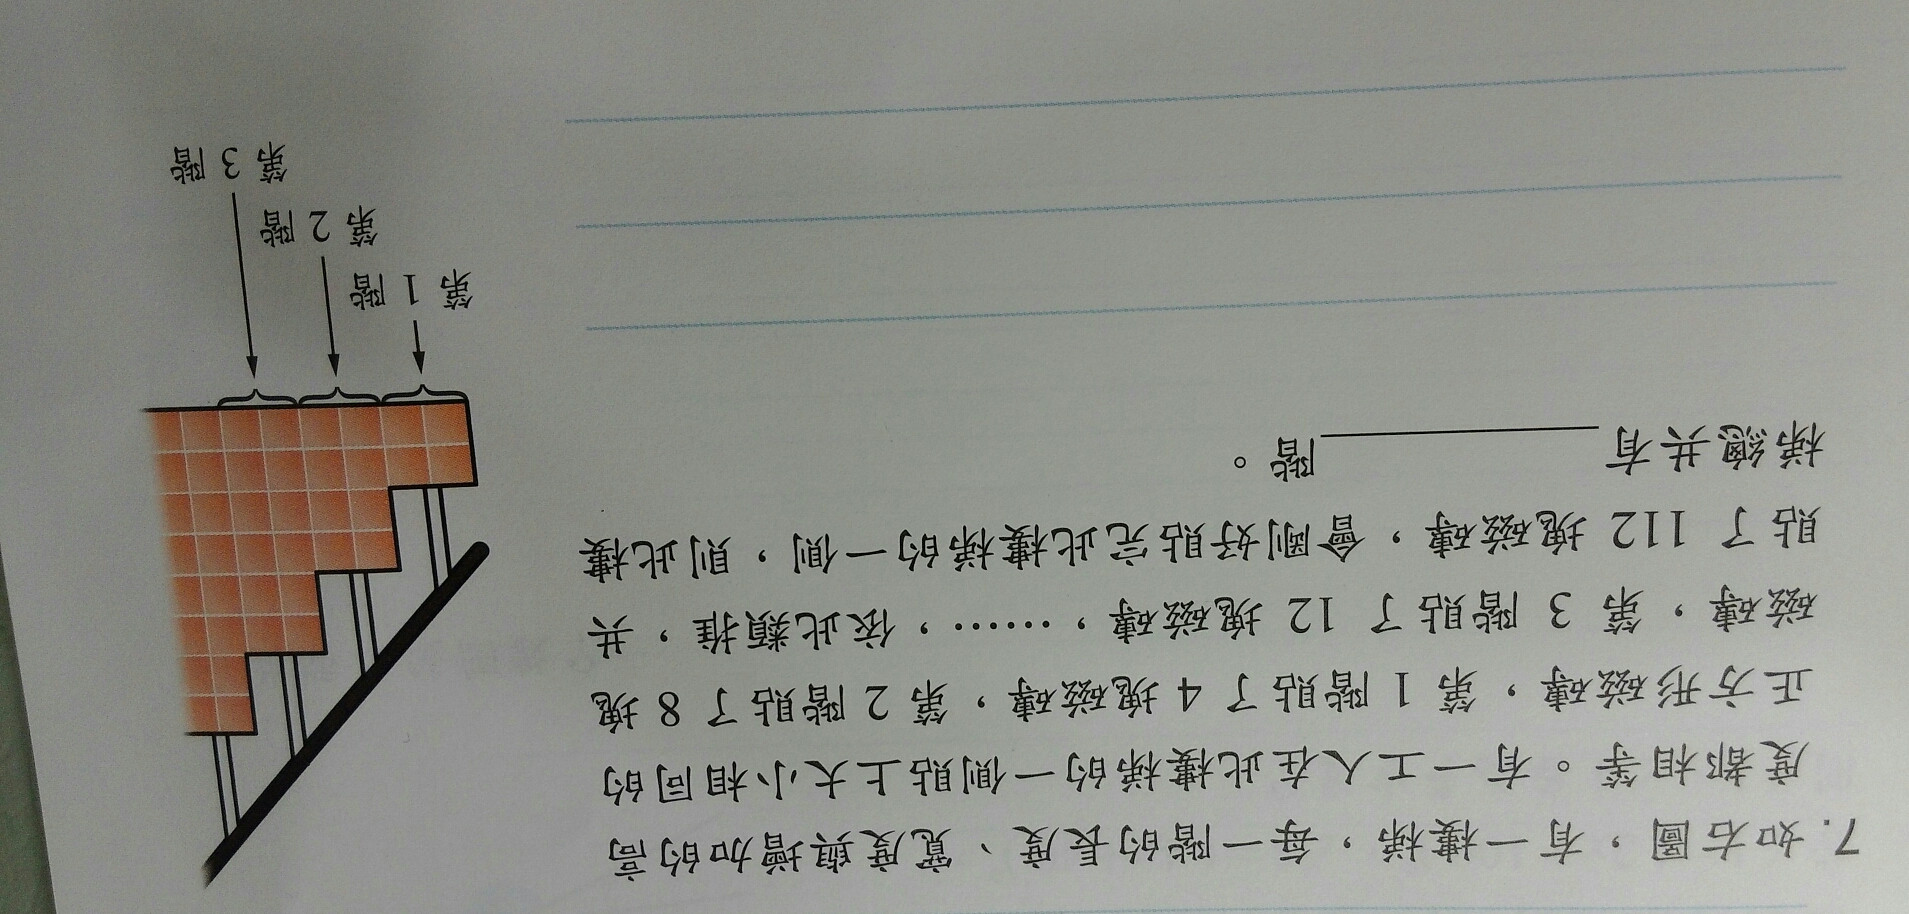 7. 如右圖，有一樓梯，每一階的長度、寬度與增加的高
度都相等。有一工人在此樓梯的一側貼上大小相同的
正方形磁磚，第 1 階貼了 4 塊磁磚，第 2 階貼了 8 塊
磁磚，第 3 階貼了 12 塊磁磚，……，依此類推，共
貼了 112 塊磁磚，會剛好貼完此樓梯的一側，則此樓
梯總共有＿＿＿＿＿階。
第 1 階
第 2 階
第 3 階